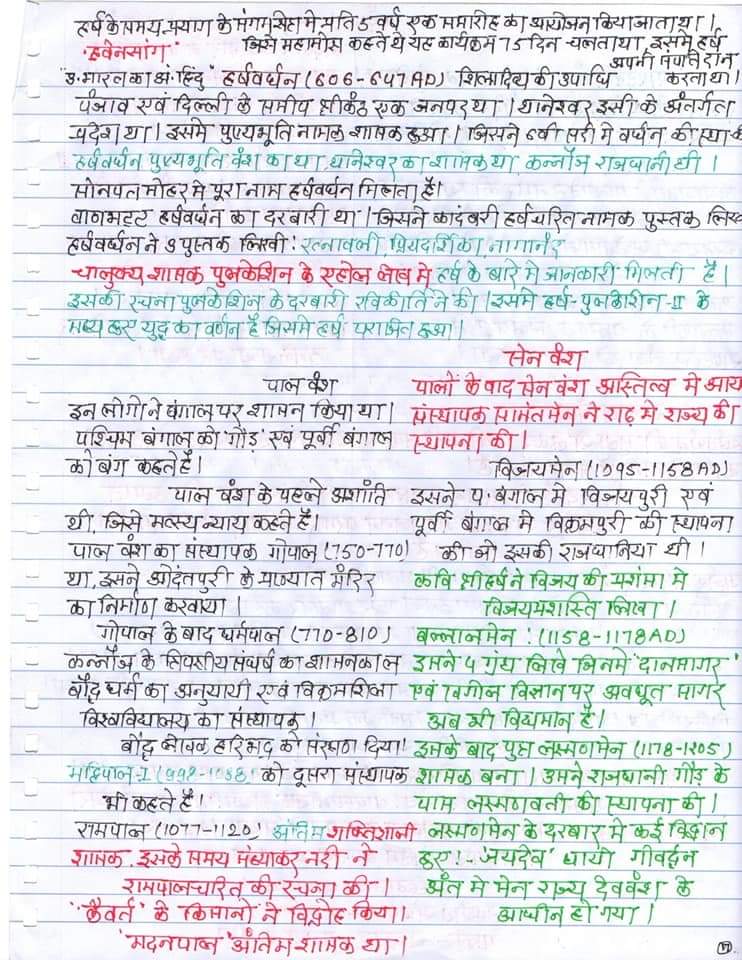 हर्ष के समय प्रयाग के संगम क्षेत्र मे प्रति 5 वर्ष एक समारोह का आयोजन किया जाता था।
'हवेनसांग' जिसे महामोक्ष कहते थे यह कार्यक्रम 75 दिन चलता था, इसमे हर्ष
अपनी सम्पत्ति दान
उ. भारत का अं. हिंदु हर्षवर्धन (606-647AD) शिलादित्य की उपाधि करता था।
पंजाब एवं दिल्ली के समीप श्रीकंठ एक जनपद था। थानेश्वर इसी के अंतर्गत
प्रदेश था। इसमे पुष्यभूति नामक शासक हुआ। जिसने 6वी सदी मे वर्धन की स्था की
हर्षवर्धन पुष्यभूति वंश का था, थानेश्वर का शासक था कन्नौज राजधानी थी।
सोनपत मोहर मे पूरा नाम हर्षवर्धन मिलता है।
बाणभट्ट हर्षवर्धन का दरबारी था। जिसने कादंबरी हर्षचरित नामक पुस्तक
हर्षवर्धन ने 3 पुस्तक लिखी: रत्नावली, प्रियदर्शिका, नागानंद
चालुक्य शासक पुलकेशिन के एहोल लेख मे हर्ष के बारे मे जानकारी मिलती है।
इसकी रचना पुलकेशिन के दरबारी रविकीर्ति ने की। इसमे हर्ष-पुलकेशिन-II के
मध्य हुए युद्ध का वर्णन है जिसमे हर्ष पराजित हुआ।
पाल वंश
इन लोगो ने बंगाल पर शासन किया था।
पश्चिम बंगाल को 'गौंड़' एवं पूर्वी बंगाल
को बंग कहते है।
पाल वंश के पहले अशांति
थी, जिसे मत्स्य न्याय कहते है।
पाल वंश का संस्थापक गोपाल (750-770)
था, इसने ओदंतपुरी के प्रख्यात मंदिर
का निर्माण करवाया।
गोपाल के बाद धर्मपाल (770-810)
कन्नौज के त्रिपक्षीय संघर्ष का शासनकाल
बौद्ध धर्म का अनुयायी एवं विक्रमशिला
विश्वविद्यालय का संस्थापक।
बौद्ध लेखक हरिभद्र को संरक्षण दिया।
महिपाल-I को दूसरा संस्थापक
भी कहते है।
रामपाल (1077-1120) अंतिम शक्तिशाली
शासक. इसके समय संध्याकर नंदी ने
रामपालचरित की रचना की।
"कैवर्त" के किसानो ने विद्रोह किया।
'मदनपाल' अंतिम शासक था।
सेन वंश
पालो के बाद सेन वंश अस्तित्व मे आय
संस्थापक सामंतसेन ने राढ़ मे राज्य की
स्थापना की।
विजयसेन (1095-1158AD)
इसने प. बंगाल मे विजयपुरी एवं
पूर्वी बंगाल मे विक्रमपुरी की स्थापना
की जो इसकी राजधानिया थी।
कवि श्रीहर्ष ने विजय की प्रशंसा मे
विजयप्रशस्ति लिखा।
बल्लालसेन: (1158-1178AD)
इसने 4 ग्रंथ लिखे जिनमे 'दानसागर'
एवं खगोल विज्ञान पर अवधूत सागर
अब भी विद्यमान है।
इसके बाद पुत्र लक्ष्मणसेन (1178-1205)
शासक बना। उसने राजधानी गौड़ के
पास लक्ष्मणवती की स्थापना की।
लक्ष्मणसेन के दरबार मे कई विद्वान
हुए:- 'जयदेव' धोयी गोवर्द्धन
अंत मे सेन राज्य देववंश के
आधीन हो गया।